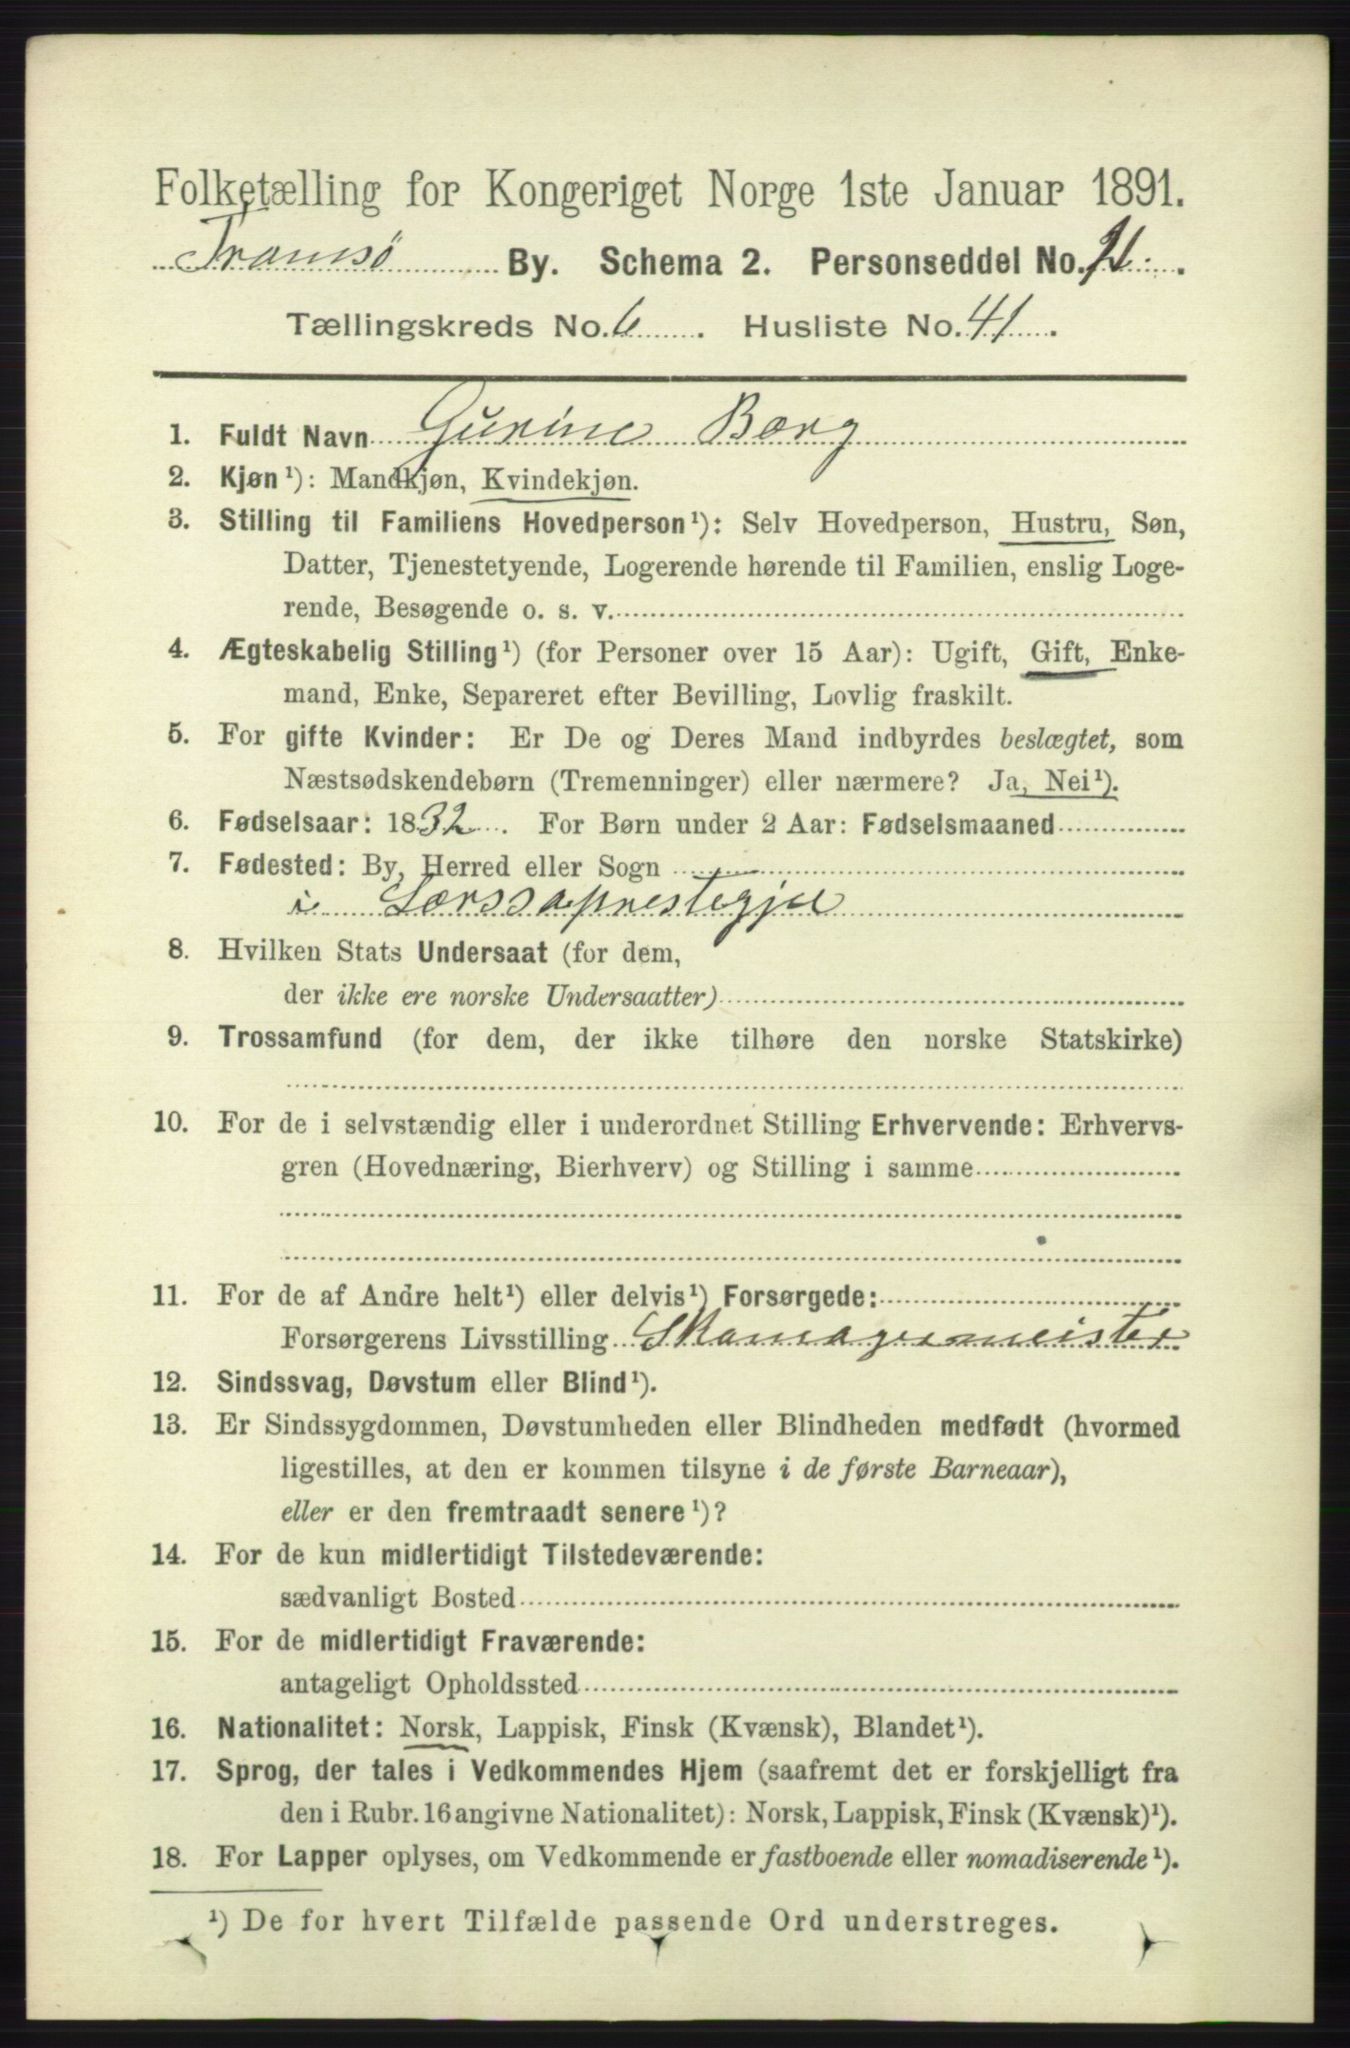 Folketælling for Kongeriget Norge 1ste Januar 1891.
Tromsø By. Schema 2. Personseddel No.
Tællingskreds No. 6. Husliste No. 41.
1. Fuldt Navn Gurine Borg
2. Kjøn¹): Mandkjøn, Kvindekjøn.
3. Stilling til Familiens Hovedperson¹): Selv Hovedperson, Hustru, Søn,
Datter, Tjenestetyende, Logerende hørende til Familien, enslig Loge-
rende, Besøgende o. s. v.
4. Ægteskabelig Stilling¹) (for Personer over 15 Aar): Ugift, Gift, Enke-
mand, Enke, Separeret efter Bevilling, Lovlig fraskilt.
5. For gifte Kvinder: Er De og Deres Mand indbyrdes beslægtet, som
Næstsødskendebørn (Tremenninger) eller nærmere? Ja, Nei¹).
6. Fødselsaar: 1832. For Børn under 2 Aar: Fødselsmaaned
7. Fødested: By, Herred eller Sogn
i
8. Hvilken Stats Undersaat (for dem,
der ikke ere norske Undersaatter)
9. Trossamfund (for dem, der ikke tilhøre den norske Statskirke)
10. For de i selvstændig eller i underordnet Stilling Erhvervende: Erhvervs-
gren (Hovednæring, Bierhverv) og Stilling i samme
11. For de af Andre helt¹) eller delvis¹) Forsørgede:
Forsørgerens Livsstilling Skomagermeister
12. Sindssvag, Døvstum eller Blind¹).
13. Er Sindssygdommen, Døvstumheden eller Blindheden medfødt (hvormed
ligestilles, at den er kommen tilsyne i de første Barneaar),
eller er den fremtraadt senere¹)?
14. For de kun midlertidigt Tilstedeværende:
sædvanligt Bosted
15. For de midlertidigt Fraværende:
antageligt Opholdssted
16. Nationalitet: Norsk, Lappisk, Finsk (Kvænsk), Blandet¹).
17. Sprog, der tales i Vedkommendes Hjem (saafremt det er forskjelligt fra
den i Rubr. 16 angivne Nationalitet): Norsk, Lappisk, Finsk (Kvænsk)¹).
18. For Lapper oplyses, om Vedkommende er fastboende eller nomadiserende¹).
¹) De for hvert Tilfælde passende Ord understreges.